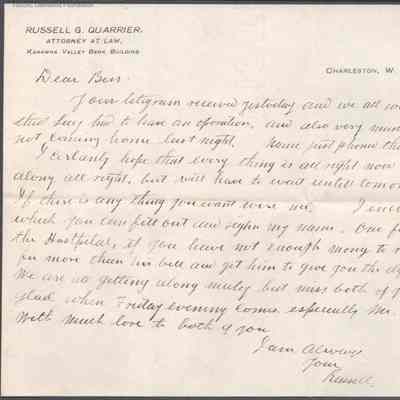 RUSSELL G. QUARRIER,
ATTORNEY AT LAW,
KANAWHA VALLEY BANK BUILDING
CHARLESTON, W.
Dear Bess.
Your telegram received yesterday and we all
that had to have an operation, and also very
not coming home last night. phone
I certainly hope that every thing is all right now
along all right, but will have to wait until
If there is any thing you want wire me. I
which you can fill out and sign my name. One
the Hospital, if you have not enough money to
for more than his bill and get him to give you the
We are all getting along nicely but miss both of
glad when Friday evening comes especially
With much love to both of you
I am Always
Your
Russell.